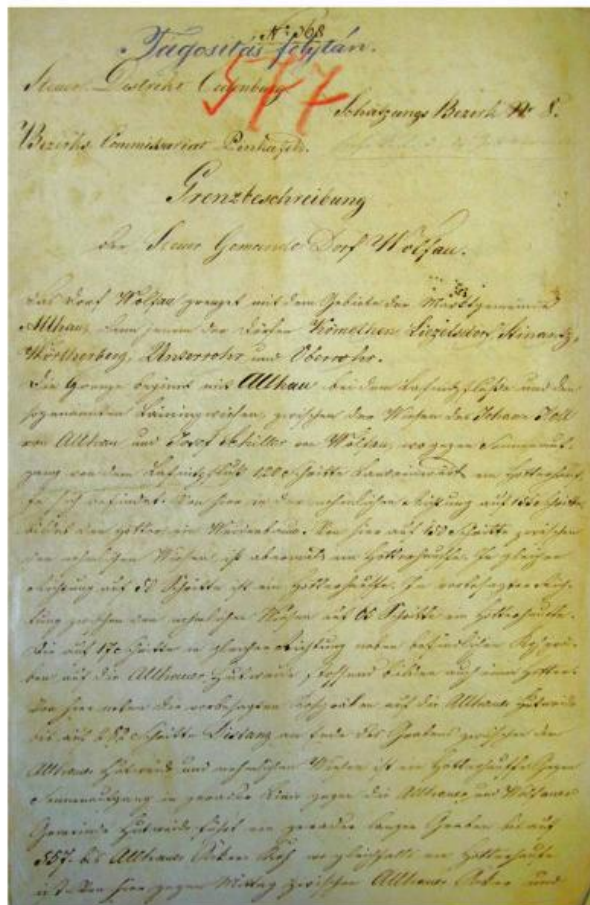 No 368
Tagositás folytán.
577
Steuer District Oedenburg
Schatzungs Bezirk No 8.
Bezirks Commissariat Pinkafeld.
Grenzbeschreibung
der Steuer Gemeinde Dorf Wolfau.
Das Dorf Wolfau grenzt mit dem Gebiete der Marktgemeinde
Allhau, dann jenem der Dörfer Kemethen, Litzelsdorf, Stinatz,
Wörtherberg, Unterrohr und Oberrohr.
Die Grenze beginnt mit Allhau bei dem Lafnitzfluße und den
sogenannten zwischen den Wiesen des Johann Zoll
von Allhau und Josef Schiller von Wolfau, wo gegen Sonnenauf-
gang von dem Lafnitzfluß 120 Schritte ein Hotterhauf-
fe sich befindet. Von hier in der nehmlichen Richtung auf Schritte
bildet den Hotter ein Weidenbaum. Von hier auf Schritte zwischen
den nehmlichen Wiesen ist abermals ein Hotterhauffe. In gleicher
Richtung auf 50 Schritte ist ein Hotterhauffe. In vorbesagter Rich-
tung zwischen den nehmlichen Wiesen auf 65 Schritte ein Hotterhauffe.
Bis auf 170 Schritte in gleicher Richtung neben befindlichen
auf die Allhauer Hutweide stoßend bilden auch einen Hotter.
Von hier neben die vorbesagten auf die Allhauer Hutweide
bis auf 282 Schritte Distanz am Ende des Grabens zwischen den
Allhauer Hutweide und nehmlichen Wiesen ist ein Hotterhauffe. Gegen
Sonnenaufgang in gerader Linie gegen die Allhauer und Wolfauer
Gemeinde Hutweide führt ein gerader langer Graben bis auf
557. bis Allhauer Acker wo gleichfalls ein Hotterhauffe
ist. Von hier gegen Mittag zwischen Allhauer Acker und